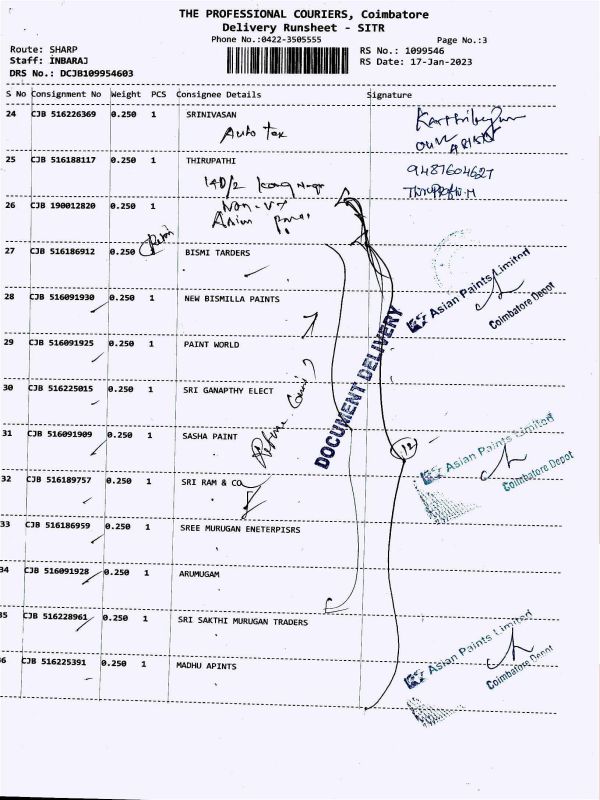 THE PROFESSIONAL COURIERS, Coimbatore
Delivery Runsheet - SITR
Phone No.:0422-3505555
Page No.:3
Route: SHARP
RS No.: 1099546
Staff: INBARAJ
RS Date: 17-Jan-2023
DRS No.: DCJB109954603
S No Consignment No Weight PCS Consignee Details Signature
24 CJB 516226369 0.250 1 SRINIVASAN
Auto Tex
25 CJB 516188117 0.250 1 THIRUPATHI
9487604627
26 CJB 190012820 0.250 1
27 CJB 516186912 0.250 BISMI TARDERS
Asian Paints Limited
Coimbatore Depot
28 CJB 516091930 0.250 1 NEW BISMILLA PAINTS
DOCUMENT DELIVERY
29 CJB 516091925 0.250 1 PAINT WORLD
30 CJB 516225015 0.250 1 SRI GANAPTHY ELECT
31 CJB 516091909 0.250 1 SASHA PAINT
12
Asian Paints Limited
Coimbatore Depot
32 CJB 516189757 0.250 1 SRI RAM & CO
33 CJB 516186959 0.250 1 SREE MURUGAN ENETERPISRS
34 CJB 516091928 0.250 1 ARUMUGAM
35 CJB 516228961 0.250 1 SRI SAKTHI MURUGAN TRADERS
Asian Paints Limited
Coimbatore Depot
6 CJB 516225391 0.250 1 MADHU APINTS